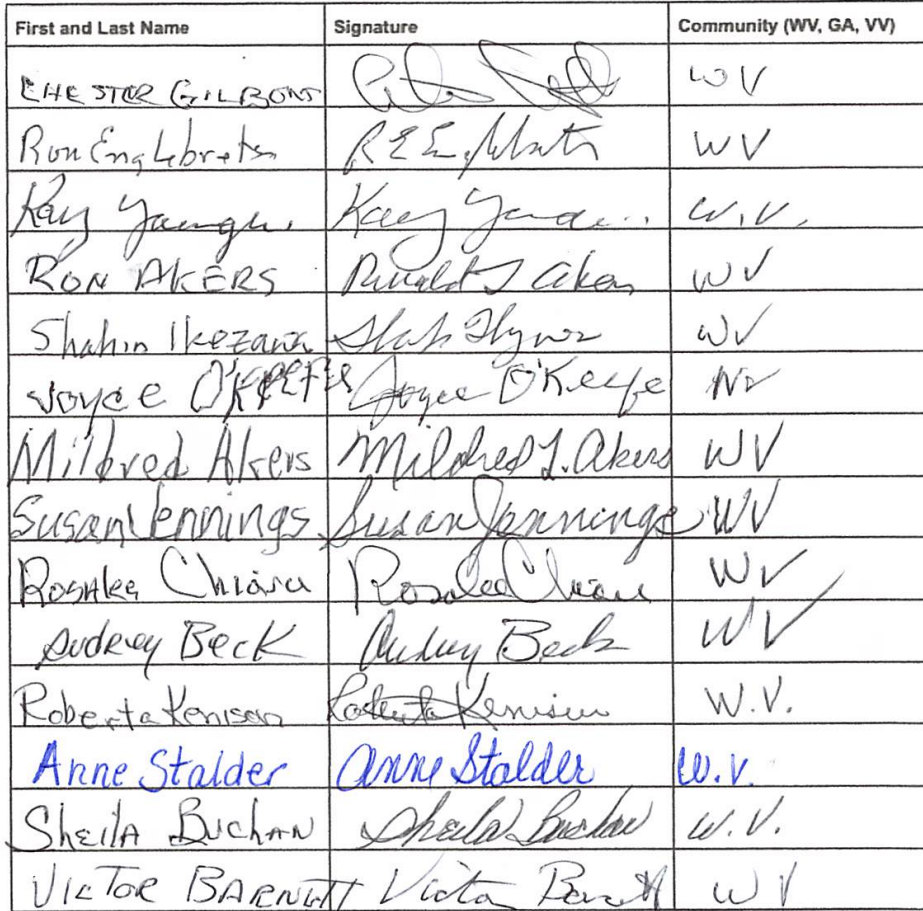 First and Last Name Signature Community (WV, GA, VV)
CHESTER GILBONS WV
Ron Englebretsn WV
Kay W.V.
RON AKERS Ronald J Akers WV
Shahin Ikezawa WV
Joyce O'KEEFE Joyce O'Keefe
Mildred Akers Mildred L. Akers WV
Susan Jennings Susan Jennings WV
Rosalee Chiara Rosalee Chiara WV
Audrey Beck Audrey Beck WV
Roberta Kenison Roberta Kenison W.V.
Anne Stalder Anne Stalder W.V.
Sheila Buchan Sheila Buchan W.V.
VICTOR BARNETT Victor Barnett WV